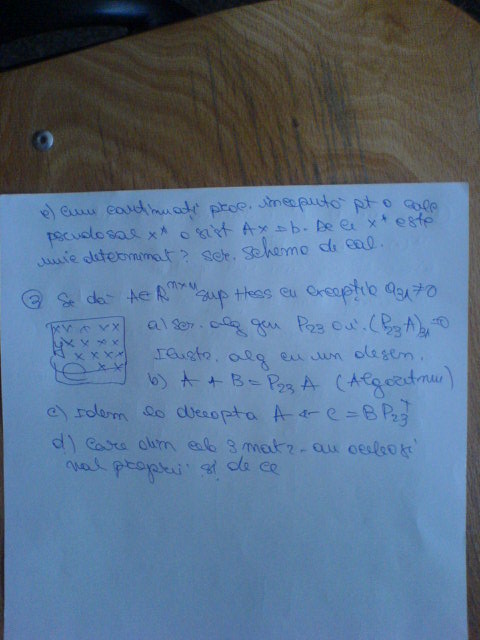 e) cum continuați proc. începută pt o calc
pseudosol x* a sist Ax=b. De ce x* este
unic determinat? scr. schema de cal.
③ Se dă A∈R^n×n sup Hess cu excepția a31≠0
a) scr. alg gen P23 a.î. (P23A)31=0
Ilustr. alg cu un desen.
b) A ← B = P23 A (Algoritmul)
c) Idem la dreapta A ← C = B P23^T
d) Care din cele 3 mat? au aceleași
val proprii și de ce